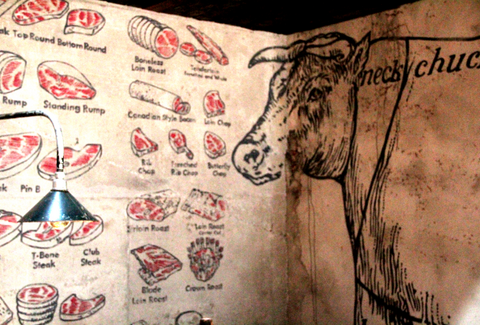 Top Round Bottom Round
Rump
Standing Rump
Pin B
T-Bone
Steak
Club
Steak
Boneless
Loin Roast
Tenderloin
Canadian Style Bacon
Loin Chop
Rib
Chop
Frenched
Rib Chop
Butterfly
Chop
Sirloin Roast
Loin Roast
Blade
Loin Roast
Crown Roast
neck
chuc